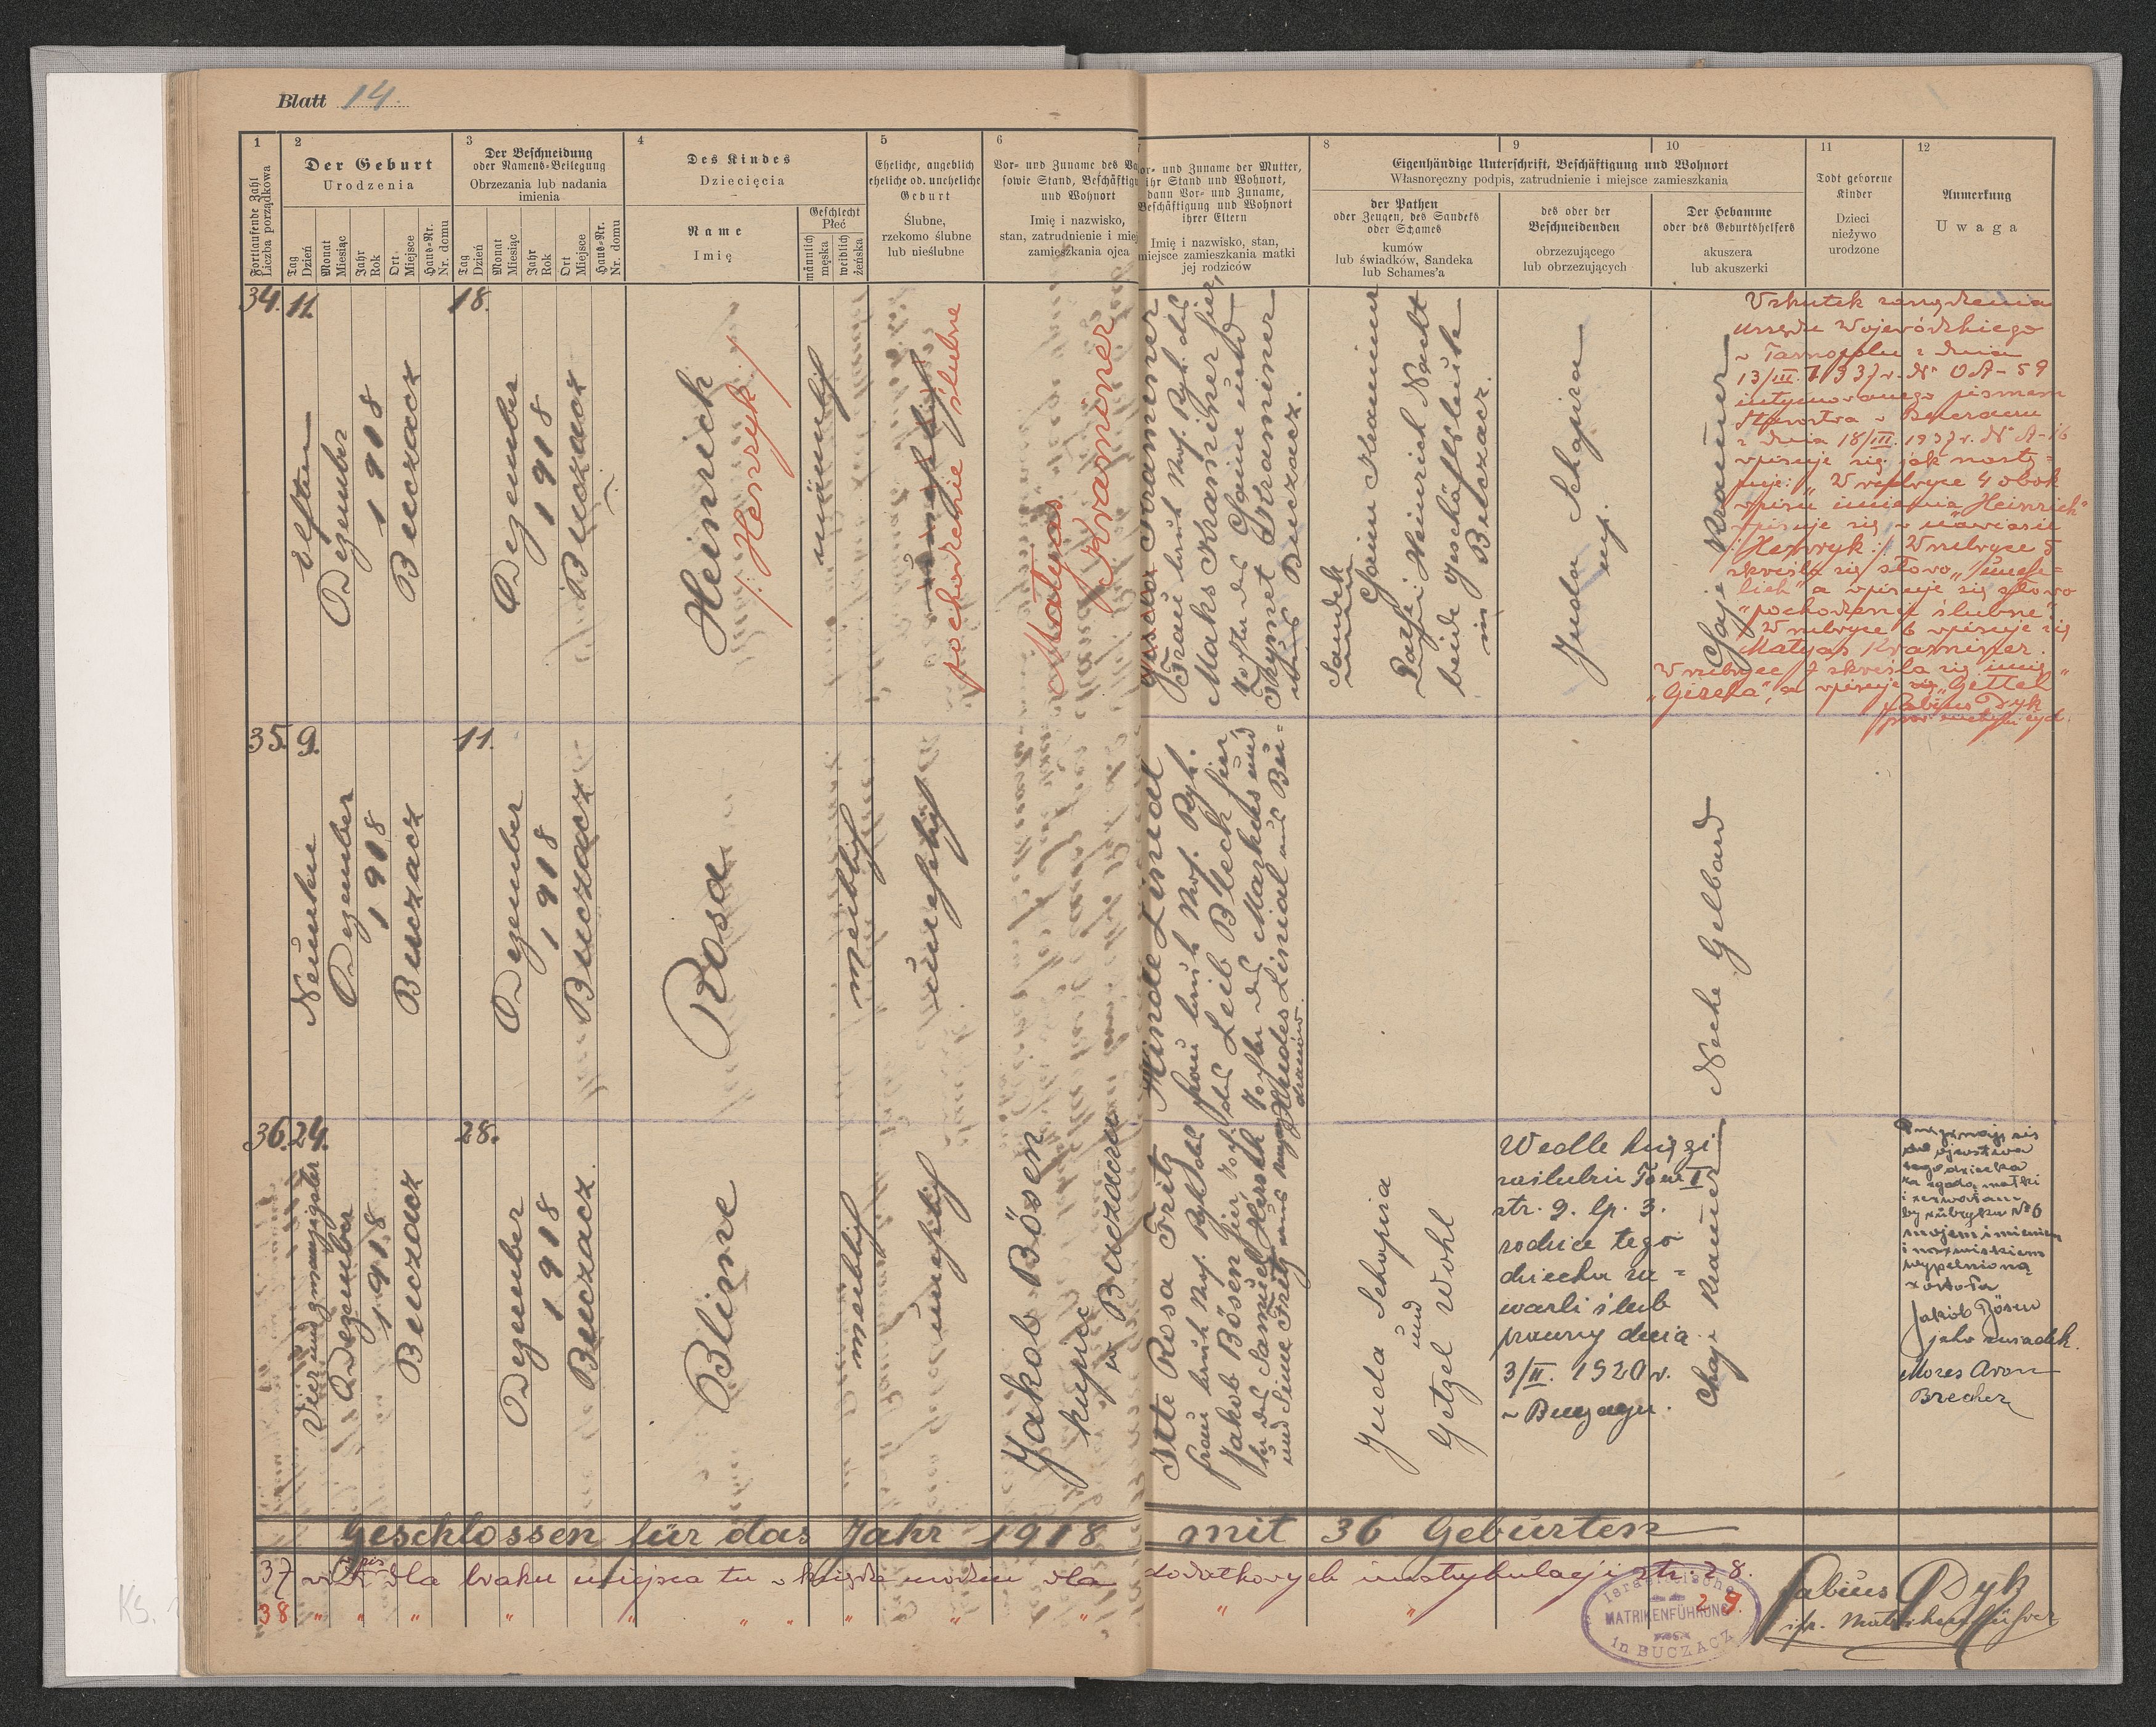 Blatt 14.
1
Fortlaufende Zahl
Liczba porządkowa
2
Der Geburt
Urodzenia
Tag
Dzień
Monat
Miesiąc
Jahr
Rok
Ort
Miejsce
Haus-Nr.
Nr. domu
3
Der Beschneidung
oder Namens-Beilegung
Obrzezania lub nadania
imienia
Tag
Dzień
Monat
Miesiąc
Jahr
Rok
Ort
Miejsce
Haus-Nr.
Nr. domu
4
Des Kindes
Dziecięcia
Name
Imię
Geschlecht
Płeć
männlich
męska
weiblich
żeńska
5
Eheliche, angeblich
eheliche od. uneheliche
Geburt
Ślubne,
rzekomo ślubne
lub nieślubne
6
Vor- und Zuname des Va
sowie Stand, Beschäftigu
und Wohnort
Imię i nazwisko,
stan, zatrudnienie i miej
zamieszkania ojca
or- und Zuname der Mutter,
ihr Stand und Wohnort,
dann Vor- und Zuname,
Beschäftigung und Wohnort
ihrer Eltern
Imię i nazwisko, stan,
miejsce zamieszkania matki
jej rodziców
Eigenhändige Unterschrift, Beschäftigung und Wohnort
Własnoręczny podpis, zatrudnienie i miejsce zamieszkania
8
der Pathen
oder Zeugen, des Sandeks
oder Schames
kumów
lub świadków, Sandeka
lub Schames'a
9
des oder der
Beschneidenden
obrzezującego
lub obrzezujących
10
Der Hebamme
oder des Geburtshelfers
akuszera
lub akuszerki
11
Todt geborene
Kinder
Dzieci
nieżywo
urodzone
12
Anmerkung
Uwaga
34.
11.
elften
Dezember
1918
Buczacz
18.
Dezember
1918
Buczacz
Heinrich
/: Henryk :/
männlich
unehelich
pochodzenie ślubne
Matyas
Kraminer
Gisela Kramner
Maks Kraminer hier,
Tochter des Chaim und
Buczacz.
Sandek
Chaim Kraminer
Heinrich Nacht
beide Geschäftsleute
in Buczacz.
Juda Schapira
mp.
Chaje Kramer
Wskutek zarządzenia
Urzędu Wojewódzkiego
w Tarnopolu z dnia
13/III. 1937 r. Nr OA-59
intymowanego pismem
Starostwa w Buczaczu
z dnia 18/III. 1937 r. Nr A-16
wpisuje się jak nastę=
puje: "W rubryce 4 obok
wpisu imienia "Heinrich"
wpisuje się w nawiasie
/:Henryk:/ W rubryce 5
skreśla się słowo "unehe=
lich" a wpisuje się słowo
"pochodzenie ślubne".
W rubryce 6 wpisuje się
Matyas Kraminer.
W rubryce 7 skreśla się imię
"Gizela", a wpisuje się "Gettel"
Fabius Dyk
35.
9.
Neunten
Dezember
1918
Buczacz
11.
Dezember
1918
Buczacz
Rosa
weiblich
unehelich
Minde Linial
des Leib Blech hier
Tochter des Markus und
Hudes Linial aus Bu=
czaczu
Neche Gelbard
36.
24.
Vierundzwanzigster
Dezember
1918
Buczacz
28.
Dezember
1918
Buczacz
Blime
weiblich
unehelich
Jakob Bösen
kupiec
w Buczaczu
Itte Rosa Fritz
Jakob Bösen hier, Toch
ter des Samuel Hersch
Juda Schapira
und
Getzel Wohl
Wedle księgi
zaślubin Tom I
str. 9. lp. 3.
rodzice tego
dziecka za=
warli ślub
prawny dnia
3/II. 1920 r.
w Buczaczu.
Chaje Kramer
Przyznaję się
do ojcostwa
tego dziecka
za zgodą matki
i zezwalam
by rubryka No 6
mojem imieniem
i nazwiskiem
wypełnioną
została
Jakób Bösen
jako świadek.
Mozes Aron
Brecher
Geschlossen für das Jahr 1918 mit 36 Geburten
37 wpis dla braku miejsca tu w księdze urodzin dla dodatkowych imatrykulacji str. 28.
38 " " " " " " " " " " " " 29.
Israelitische
MATRIKENFÜHRUNG
in BUCZACZ
Fabius Dyk
isr. Matrikenführer